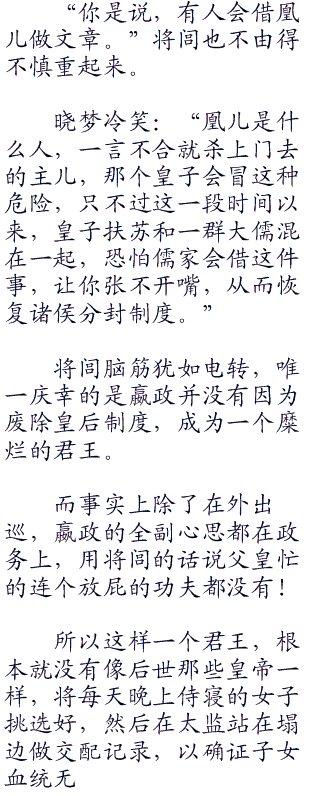 “你是说，有人会借凰
儿做文章。”将闾也不由得
不慎重起来。
晓梦冷笑：“凰儿是什
么人，一言不合就杀上门去
的主儿，那个皇子会冒这种
危险，只不过这一段时间以
来，皇子扶苏和一群大儒混
在一起，恐怕儒家会借这件
事，让你张不开嘴，从而恢
复诸侯分封制度。”
将闾脑筋犹如电转，唯
一庆幸的是嬴政并没有因为
废除皇后制度，成为一个糜
烂的君王。
而事实上除了在外出
巡，嬴政的全副心思都在政
务上，用将闾的话说父皇忙
的连个放屁的功夫都没有！
所以这样一个君王，根
本就没有像后世那些皇帝一
样，将每天晚上侍寝的女子
挑选好，然后在太监站在塌
边做交配记录，以确证子女
血统无